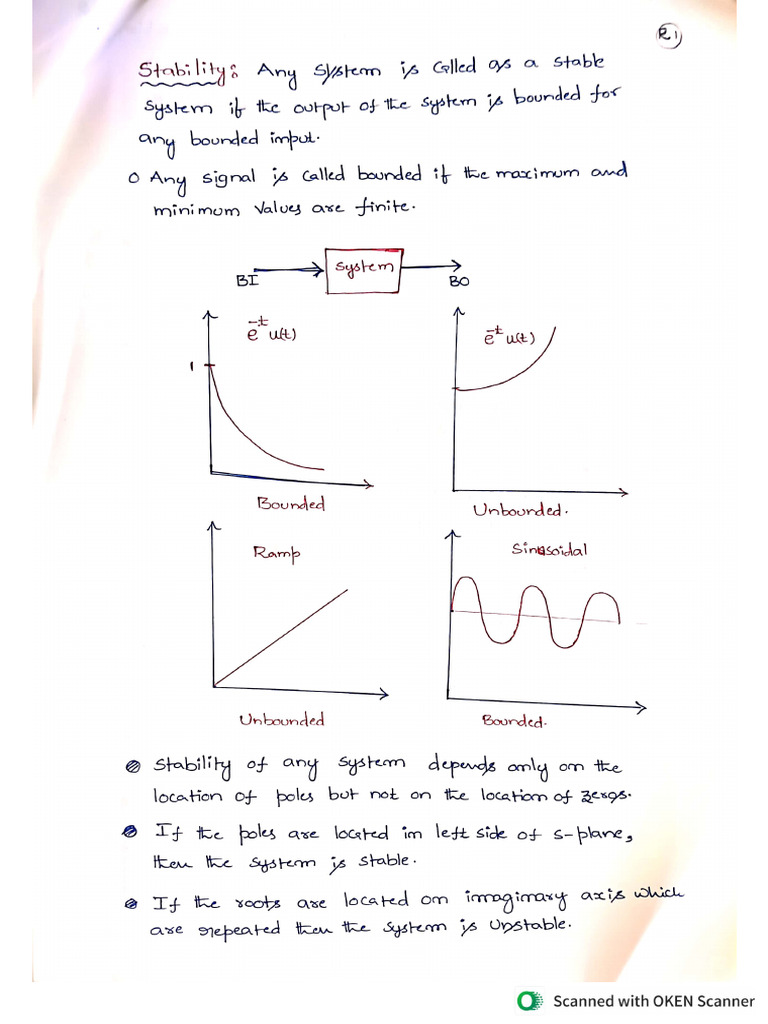 R1
Stability: Any system is called as a stable
system if the output of the system is bounded for
any bounded input.
o Any signal is called bounded if the maximum and
minimum values are finite.
BI System BO
e^-t u(t)
1
Bounded
e^-t u(t)
Unbounded.
Ramp
Unbounded
Sinusoidal
Bounded.
Stability of any system depends only on the
location of poles but not on the location of zeros.
If the poles are located in left side of s-plane,
then the system is stable.
If the roots are located on imaginary axis which
are repeated then the system is Unstable.
Scanned with OKEN Scanner